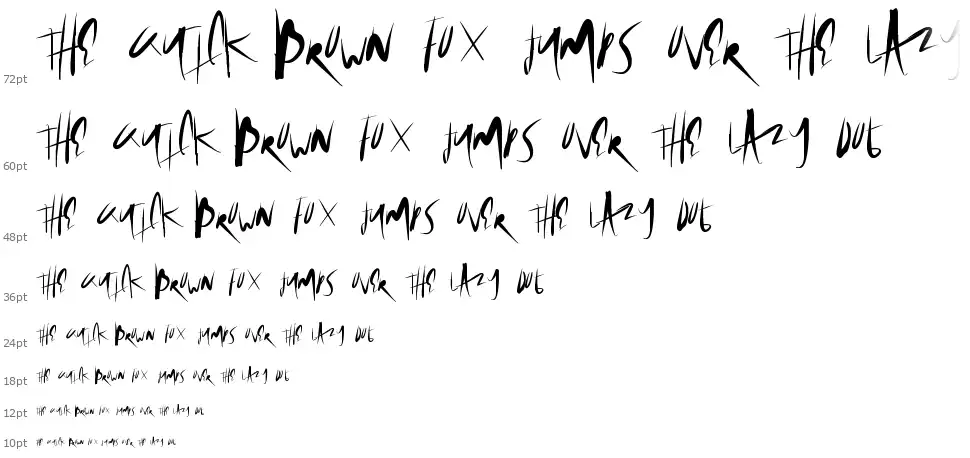 THE QUICK BROWN FOX JUMPS OVER THE LAZY
72pt
THE QUICK BROWN FOX JUMPS OVER THE LAZY DOG
60pt
THE QUICK BROWN FOX JUMPS OVER THE LAZY DOG
48pt
THE QUICK BROWN FOX JUMPS OVER THE LAZY DOG
36pt
THE QUICK BROWN FOX JUMPS OVER THE LAZY DOG
24pt
THE QUICK BROWN FOX JUMPS OVER THE LAZY DOG
18pt
THE QUICK BROWN FOX JUMPS OVER THE LAZY DOG
12pt
THE QUICK BROWN FOX JUMPS OVER THE LAZY DOG
10pt